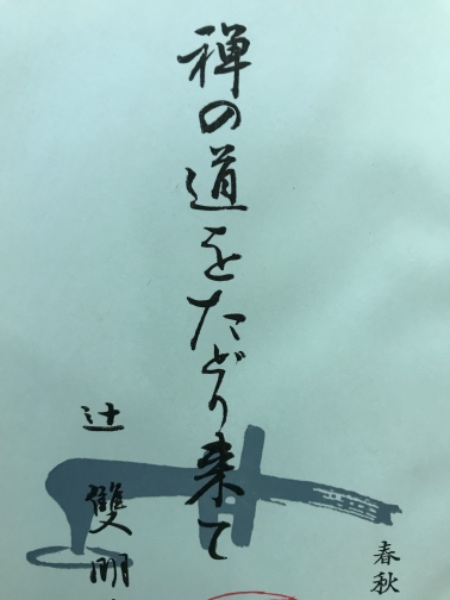 禅の道をたどり来て
辻 雙明
春秋